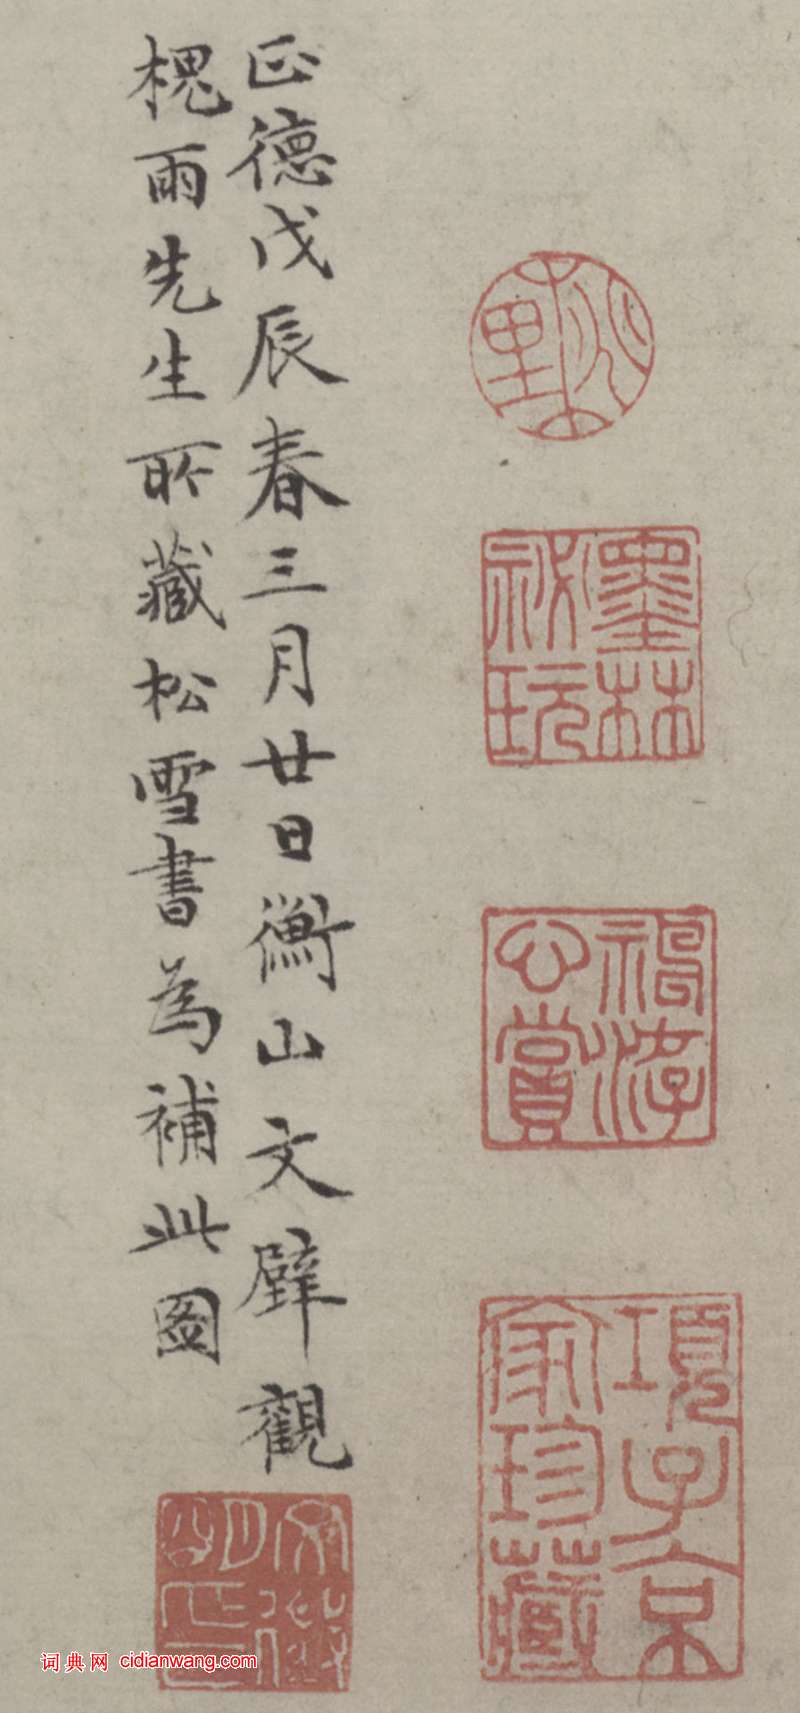 桃里
墨林祕玩
神游心賞
項子京家珍藏
正德戊辰春三月廿日衡山文壁觀
槐雨先生所藏松雪書為補此圖
文徵明印
词典网 cidianwang.com